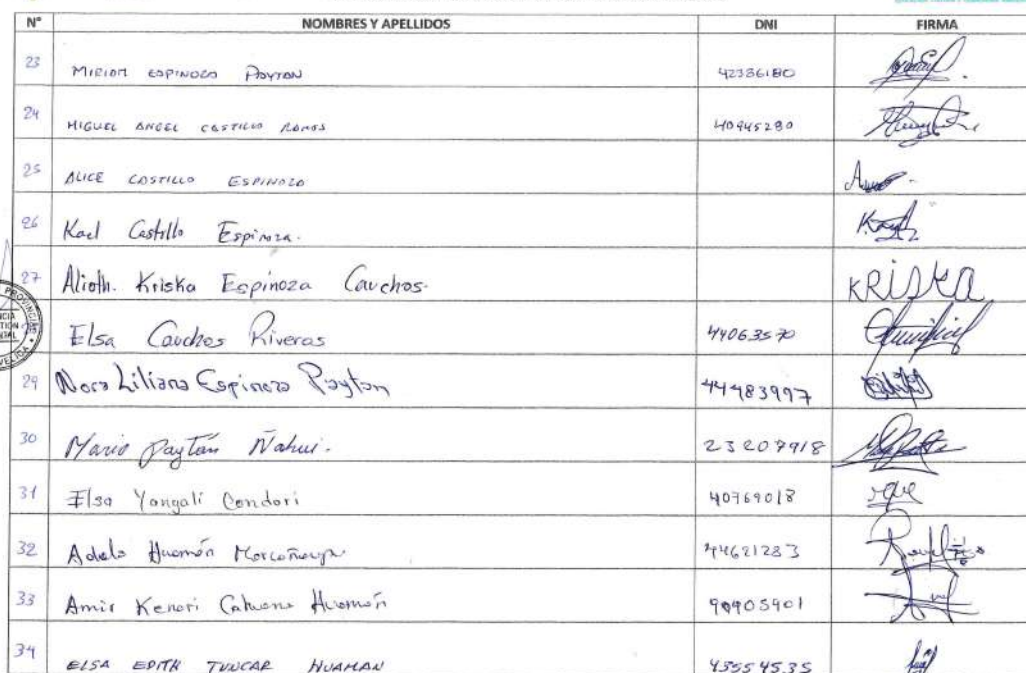 N° NOMBRES Y APELLIDOS DNI FIRMA
23 MIRIAM ESPINOZA PAYTAN 42386180
24 MIGUEL ANGEL CASTILLO RAMOS 40945280
25 ALICE CASTILLO ESPINOZA
26 Kael Castillo Espinoza.
27 Alioth. Kriska Espinoza Cauchos. KRISKA
Elsa Cauchos Riveras 44063570
29 Nora Liliana Espinoza Paytan 44483997
30 Mario Paytán Ñahui. 23207918
31 Elsa Yangali Condori 40769018
32 Adela Huamán 44621283
33 Amir Kenori Huamán 90905901
34 ELSA EDITH TUNCAR HUAMAN 43554535